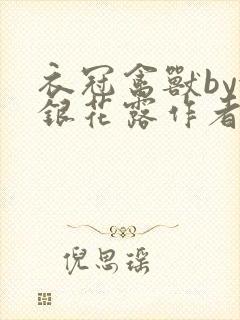 衣冠禽獸by
銀花露作者
倪思瑶